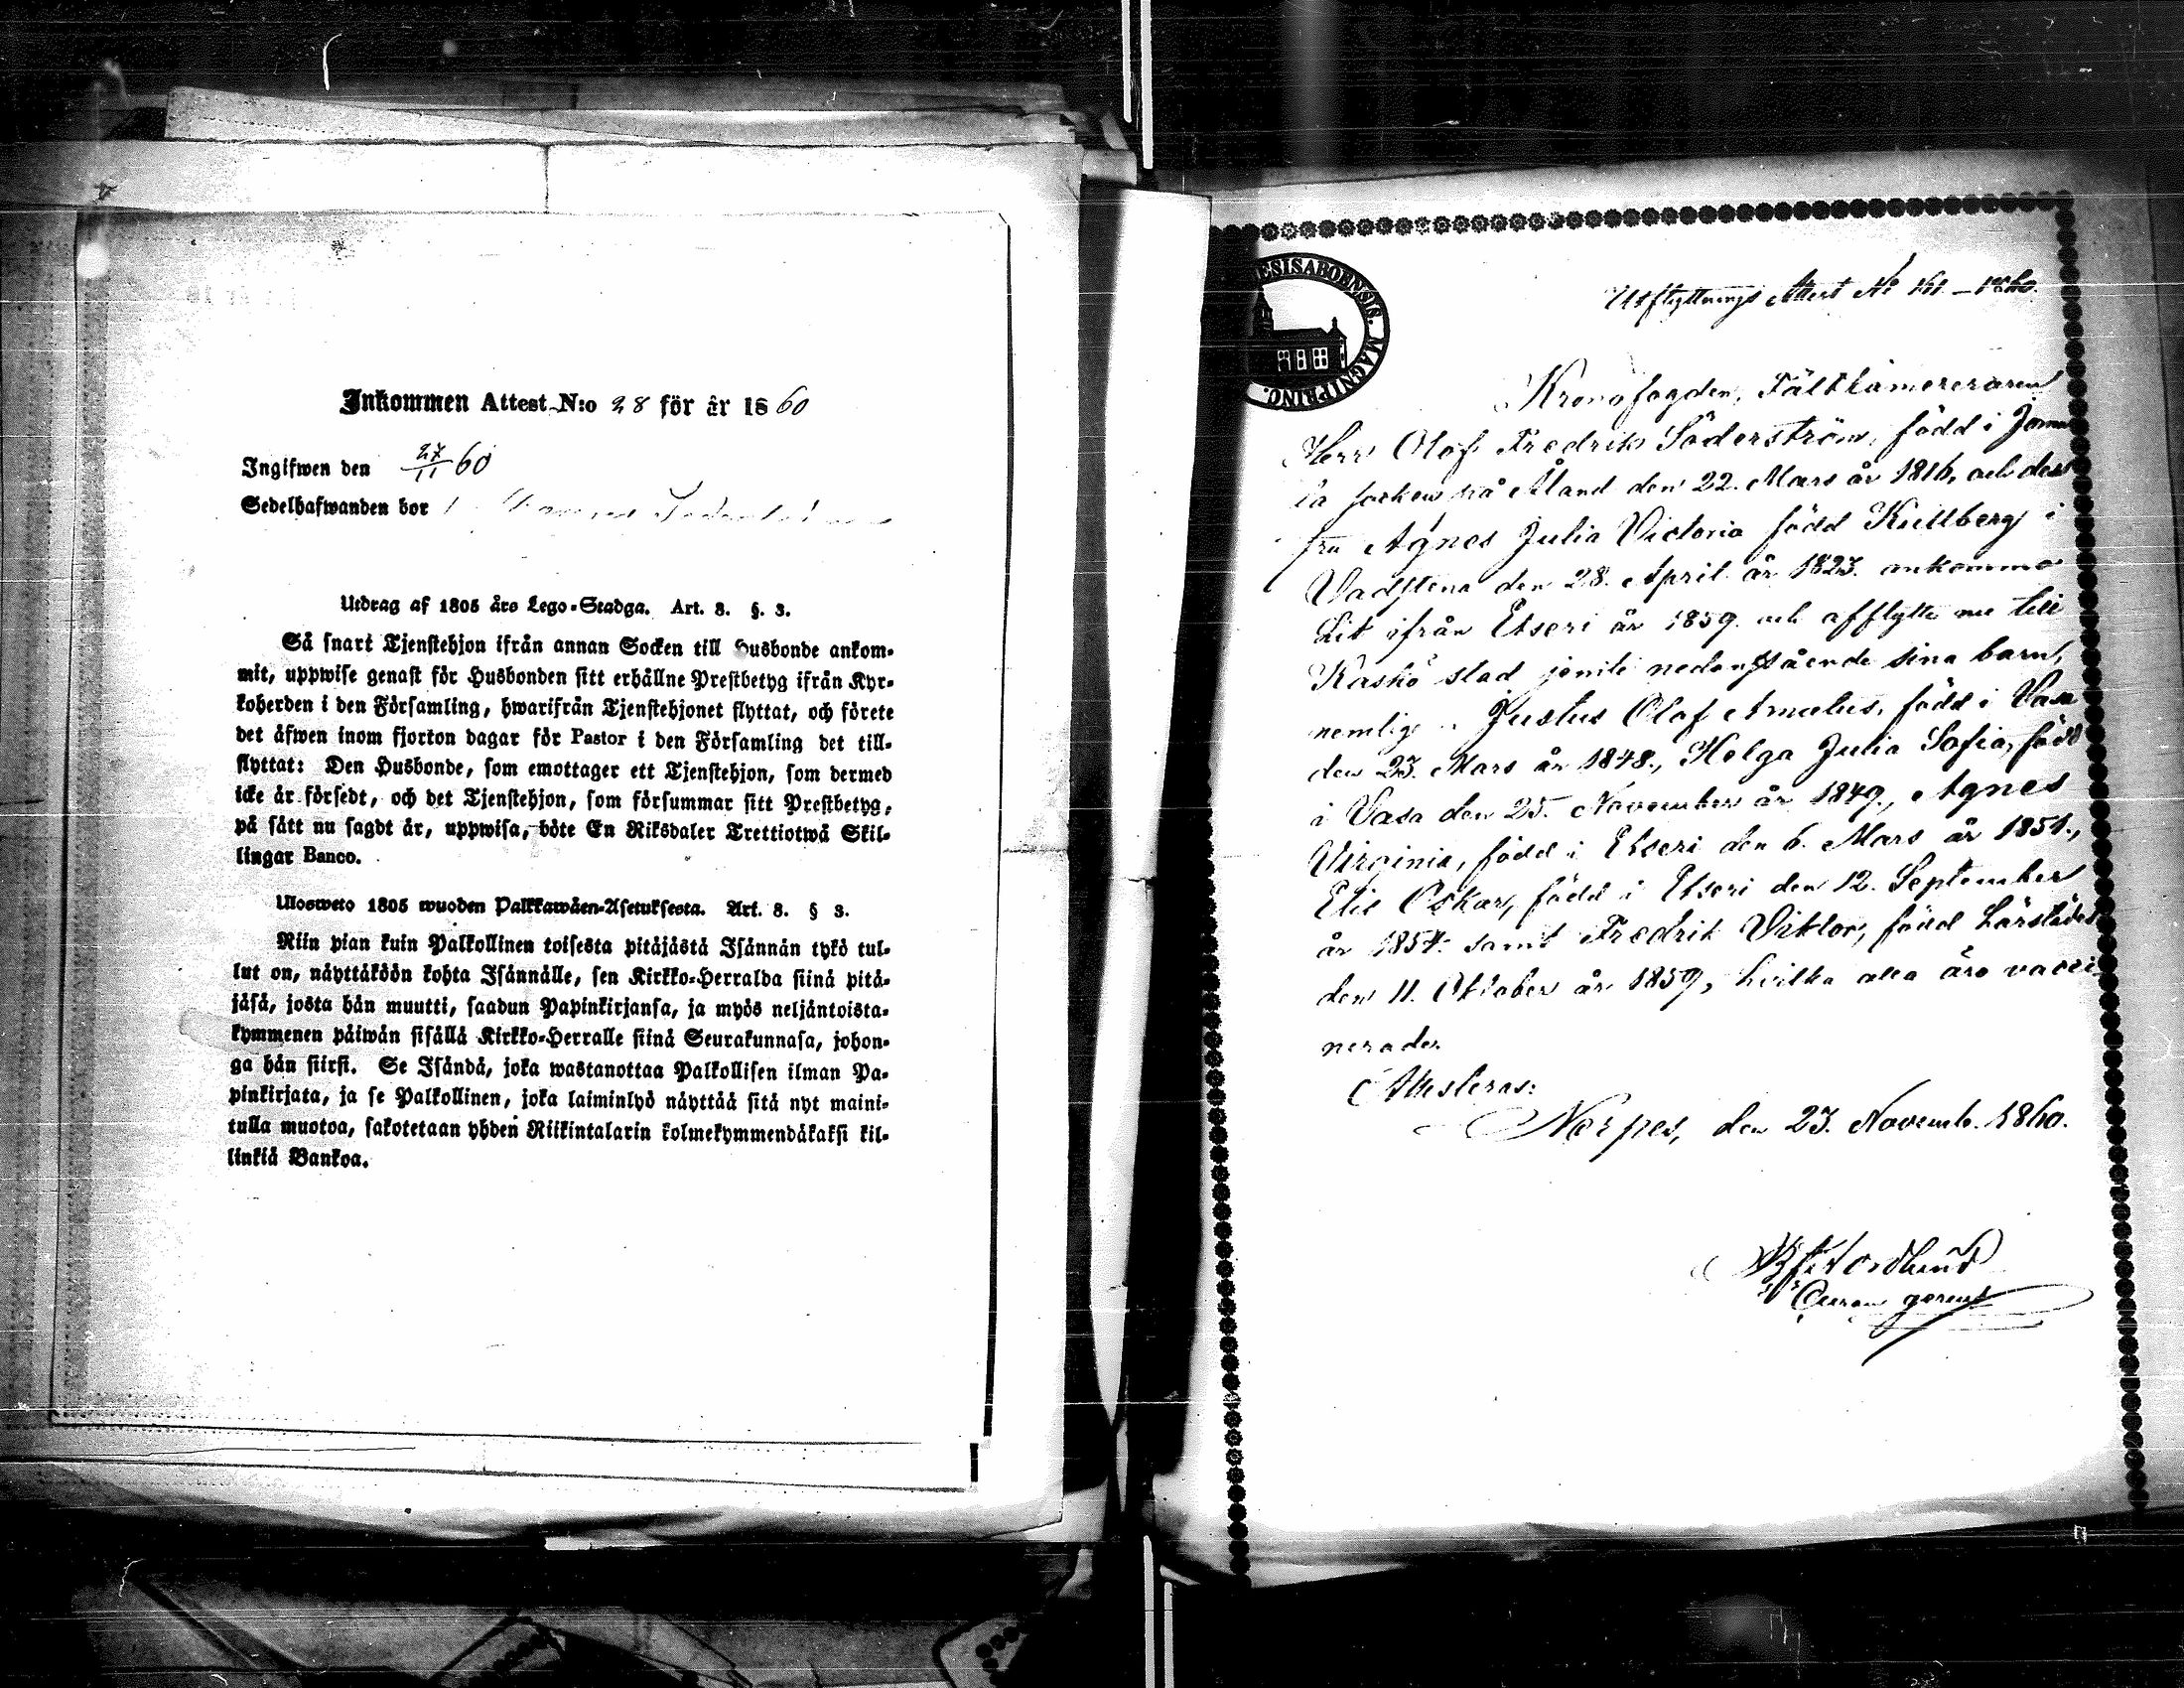 Inkommen Attest N:o 28 för år 1860
Ingifwen den 27/11 60
Sedelhafwanden bor
Utdrag af 1805 års Lego-Stadga. Art. 8. §. 3.
Så snart Tjenstehjon ifrån annan Socken till Husbonde ankom-
mit, uppwise genast för Husbonden sitt erhållne Prestbetyg ifrån Kyr-
koherden i den Församling, hwarifrån Tjenstehjonet flyttat, och förete
det äfwen inom fjorton dagar för Pastor i den Församling det till-
flyttat: Den Husbonde, som emottager ett Tjenstehjon, som dermed
icke är försedt, och det Tjenstehjon, som försummar sitt Prestbetyg,
på sätt nu sagdt är, uppwisa, böte En Riksdaler Trettiotwå Skil-
lingar Banco.
Ulosweto 1805 wuoden Palkkawäen-Asetuksesta. Art. 8. § 3.
Niin pian kuin Palkollinen toisesta pitäjästä Isännän tykö tul-
lut on, näyttäköön kohta Isännälle, sen Kirkko-Herralda siinä pitä-
jäsä, josta hän muutti, saadun Papinkirjansa, ja myös neljäntoista-
kymmenen päiwän sisällä Kirkko-Herralle siinä Seurakunnasa, johon-
ga hän siirsi. Se Isändä, joka wastanottaa Palkollisen ilman Pa-
pinkirjata, ja se Palkollinen, joka laiminlyö näyttää sitä nyt maini-
tulla muotoa, sakotetaan yhden Riikintalarin kolmekymmendäkaksi kil-
linkiä Bankoa.
ESISABOENSIS. MAGNIPRINC.
Utflyttnings Attest No 161 – 1860.
Kronofogden, Fältkamereraren
Herr Olof Fredrik Söderström, född i Joma
la socken på Åland den 22. Mars år 1816, och dess
fru Agnes Julia Victoria född Kullberg i
Vadstena den 28. April år 1823. ankomne
hit ifrån Etseri år 1859. och afflytta nu till
Kaskö stad jemte nedanstående sina barn,
nemlig. Justus Olof Amalus, född i Vasa
den 23. Mars år 1848., Helga Julia Sofia, född
i Vasa den 25. November år 1849., Agnes
Virginia, född i Etseri den 6. Mars år 1851.,
Elis Oskar, född i Etseri den 12. September
år 1854. samt Fredrik Viktor, född härstädes
den 11. Oktober år 1859, hvilka alla äro vacci-
nerade.
Attesteras:
Nerpes, den 23. Novemb. 1860.
Nordlund
Curam gerens